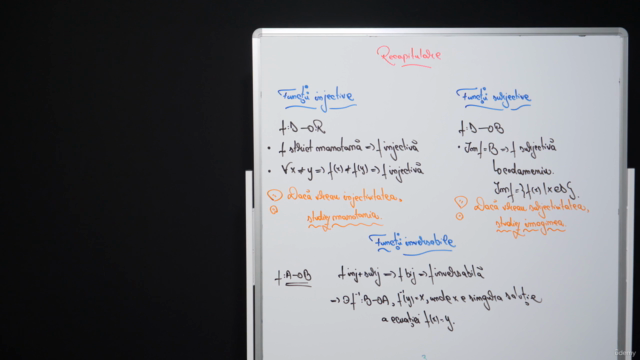 Recapitulare
Funcții injective
f:D→R
• f strict monotonă => f injectivă
• ∀x≠y => f(x)≠f(y) => f injectivă
Dacă vreau injectivitatea,
studiez monotonia
Funcții surjective
f:D→B
• Imf=B => f surjectivă
codomeniu
Imf={f(x)|x∈D}
Dacă vreau surjectivitatea,
studiez imaginea
Funcții inversabile
f:A→B
f inj+surj => f bij => f inversabilă
=> ∃f⁻¹:B→A, f⁻¹(y)=x, unde x e singura soluție
a ecuației f(x)=y
udemy